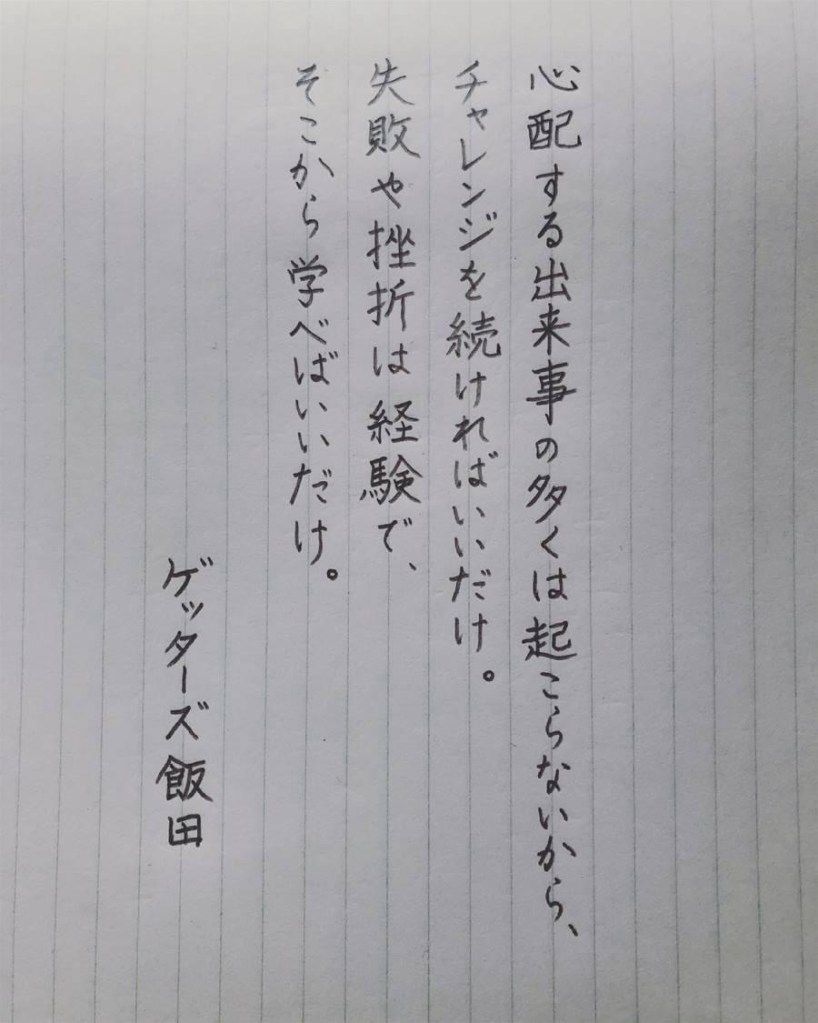 心配する出来事の多くは起こらないから、
チャレンジを続ければいいだけ。
失敗や挫折は経験で、
そこから学べばいいだけ。
ゲッターズ飯田